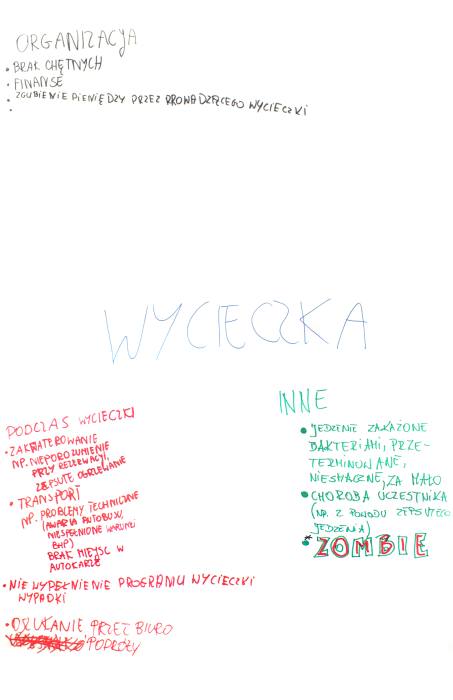 ORGANIZACJA
• BRAK CHĘTNYCH
• FINANSE
• ZGUBIENIE PIENIĘDZY PRZEZ PROWADZĄCEGO WYCIECZKI
•
WYCIECZKA
PODCZAS WYCIECZKI
• ZAKWATEROWANIE
NP. NIEPOROZUMIENIE
PRZY REZERWACJI,
ZEPSUTE OGRZEWANIE
• TRANSPORT
NP. PROBLEMY TECHNICZNE
(AWARIA AUTOBUSU,
NIESPEŁNIONE WARUNKI
BHP)
BRAK MIEJSC W
AUTOKARZE
• NIE WYPEŁNIENIE PROGRAMU WYCIECZKI
WYPADKI
• OSZUKANIE PRZEZ BIURO
PODRÓŻY
INNE
• JEDZENIE ZAKAŻONE
BAKTERIAMI, PRZE-
TERMINOWANE,
NIESMACZNE, ZA MAŁO
• CHOROBA UCZESTNIKA
(NP. Z POWODU ZEPSUTEGO
JEDZENIA)
• ZOMBIE